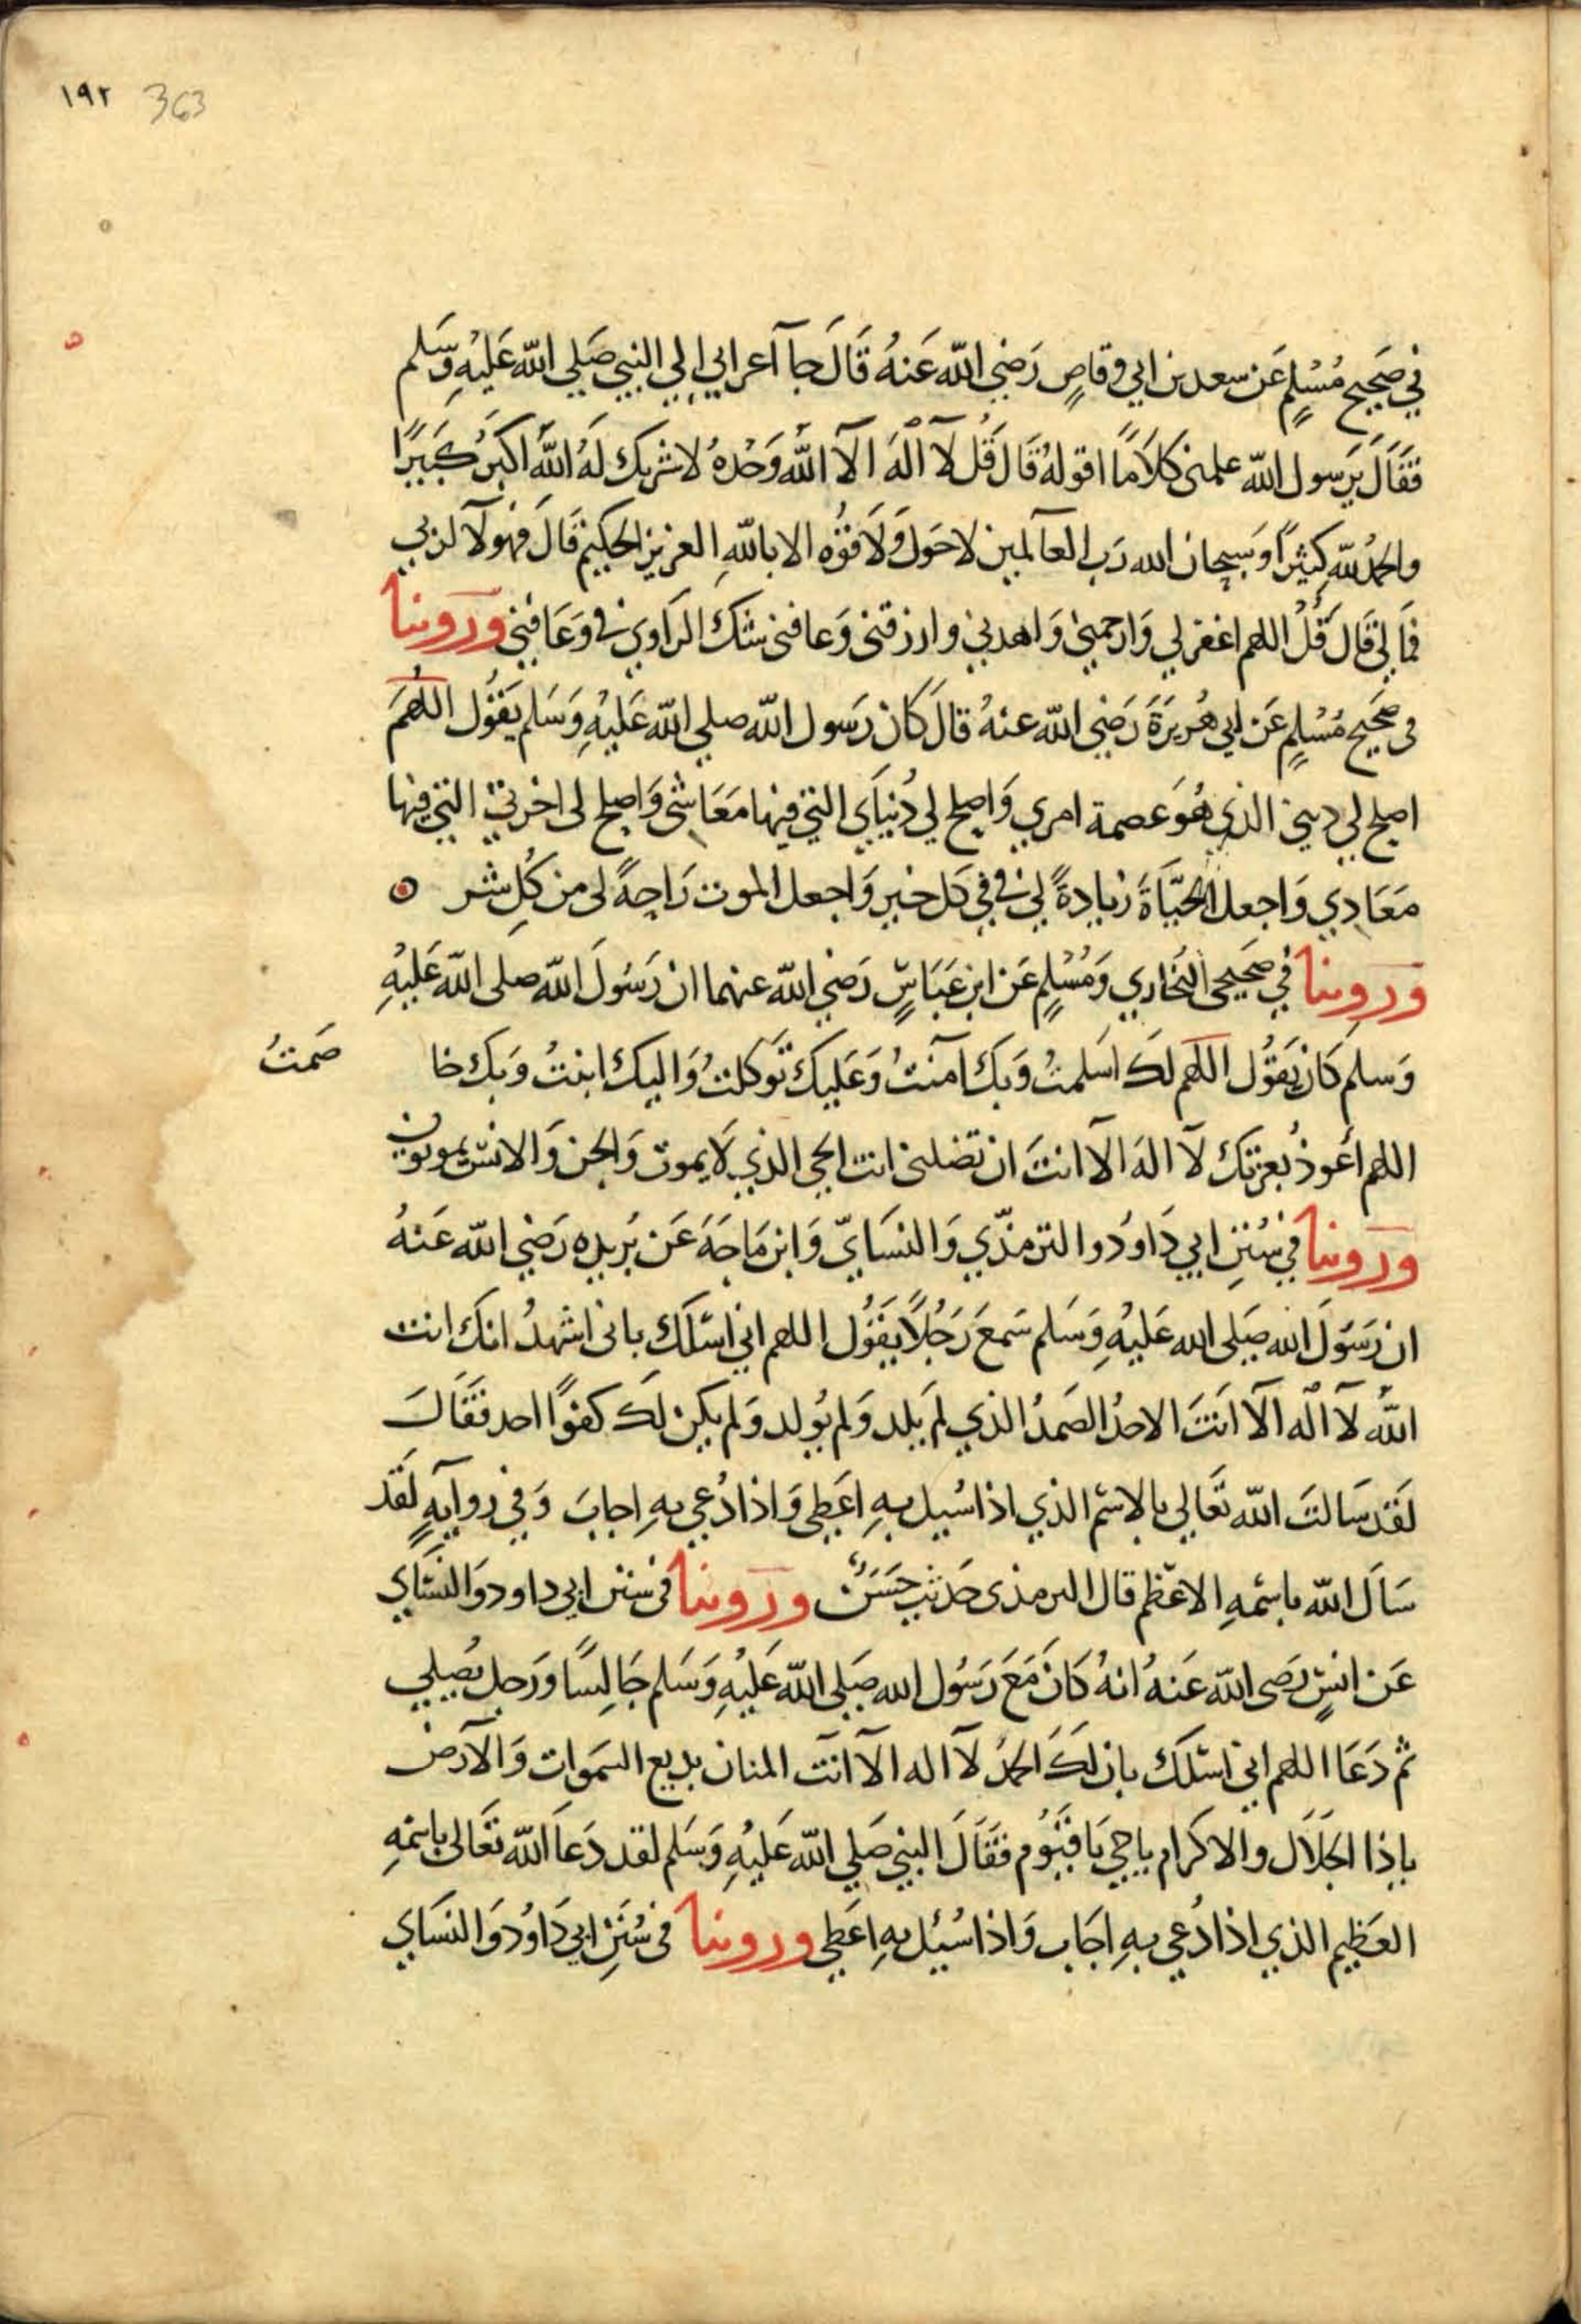 ١٩٢ 363
في صَحِيح مُسْلِمٍ عَن سعد بن ابي وقاصٍ رَضِي الله عَنهُ قَالَ جآ اَعرابي إلي النبي صَلي الله عَليْهِ وَسَلم
فقَالَ يَرَسول الله علمنى كلاَمًا اقولهُ قَالَ قُل لآ الٰهَ الآ الله وَحْدهُ لا شريك لَهُ الله اكبَرُ كَبيرًا
والحمدُ لله كثِيرًا وَسبحان الله رَب العآلمين لا حَول وَلاَ قوُه الا بالله العزيز الحكيم قَالَ فهولآ لربي
فمَا لي قَال قُل اللهم اغفر لي وَارحمني وَاهدني وارزقنى وَعافنى شك الرَاوي في وَعَافني وَرَوينا
فى صحَيح مُسْلِمٍ عَن ابي هُريرَةَ رَضِي الله عنهُ قالَ كَان رَسول الله صلي الله عَليْهِ وَسَلم يَقوُل اللهُمَ
اصلح لي ديني الذي هُوَ عصمة امري وَاصلح لي دُنيَاي التي فيها مَعَاشى وَاصلح لى اخرتي التي فيها
مَعَادِي وَاجعل الحيَّاةَ زيادةً لي في كل خير وَاجعل الموت رَاحةً لى من كُلِ شر
وَرَوِينا في صَحيحى البُخاري وَمُسْلِمٍ عَن ابن عَباسٍ رَضِي الله عنهما ان رَسُولَ الله صلى الله عَليْهِ
وَسلم كَان يَقوُل اللهم لَكَ اسَلمتُ وَبكَ امنتُ وَعَليكَ تَوَكلتُ وَاليك انبتُ وَبك خا صَمتُ
اللهم اَعوذُ بعزتك لآ الهَ الآ انتَ ان تضلنى انت الحي الذي لاَ يموت وَالجن وَالانس يموتون
وَرَوينا في سُنَنِ ابي دَاودُ والترمذّي وَالنسَايّ وَابن مَاجَهَ عَن بُريده رَضِي الله عَنهُ
ان رَسَولَ الله صَلى الله عَليْهِ وَسَلم سَمعَ رَجُلاً يَقوُل اللهم اني اسْلك بانى اشهدُ انكَ انت
الله لآ الٰه الآ انتَ الاحدُ الصَمدُ الذي لَم يَلد وَلم يوُلد وَلم يكن لَك كفوًا احد فقَالَ
لَقد سَالتَ الله تَعَالي بالاسْم الذي اذا سُيل بهِ اعَطى وَاذا دُعي بهِ اجابَ وَفي روايَهٍ لَقَد
سَاَل الله باسْمهِ الاعظم قال الترمذى حَديث حَسَنٌ وَرَوينا فى سنن ابي داود وَالنسَاي
عَن انسٍ رَضى الله عَنهُ انهُ كَانَ مَعَ رَسُول الله صَلى الله عَليْهِ وَسَلم جَالِسًا وَرَجل يصُلي
ثم دَعَا اللهم اني اسْلك بان لَكَ الحمدُ لآ اله الآ انتَ المنان بديع السَموات وَالاَرض
ياذا الجَلاَل والاكرام ياحي يَا قيَّوُم فقَالَ النبي صَلي الله عَليْهِ وَسَلم لقد دَعَا الله تَعَالى باسمْهِ
العَظِيم الذي اذا دُعي بهِ اجَاب وَاذا سُئِل بهِ اعَطي وَرَوينا فى سُنَنِ ابي دَاوُد وَالنسَاي